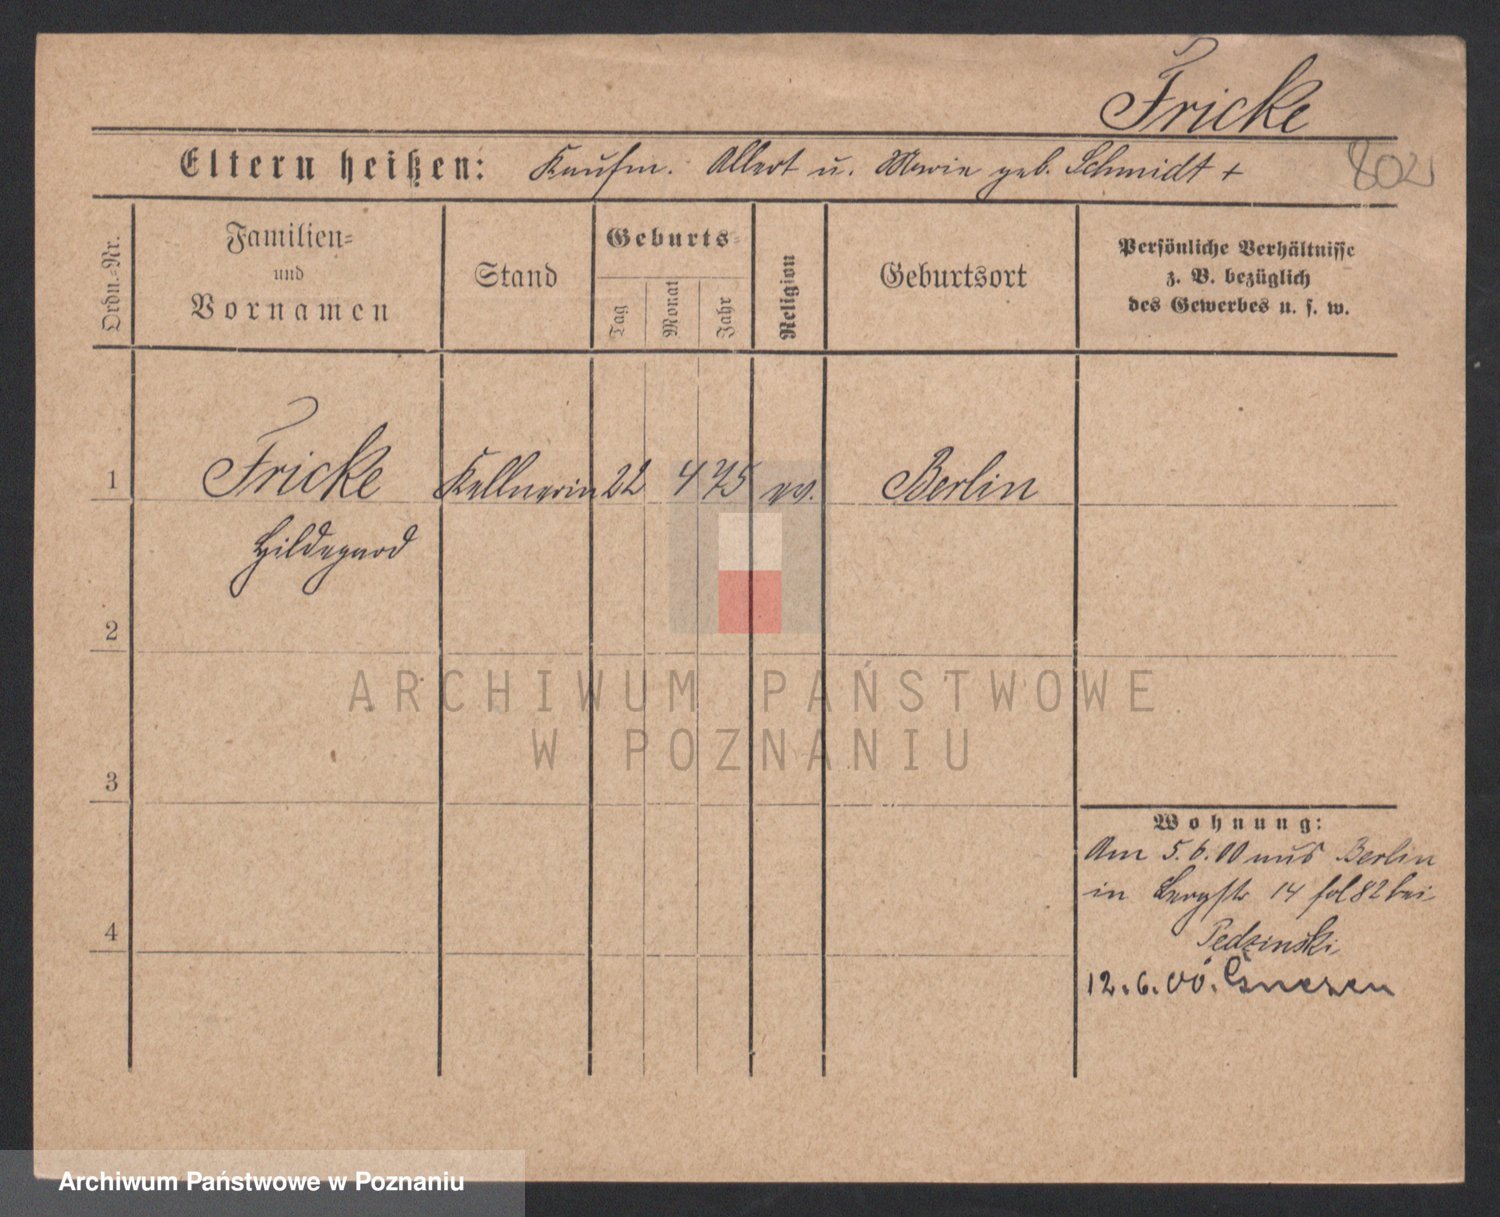 Fricke
Eltern heißen: Kaufm. Albert u. Marie geb. Schmidt +
802
Ordn.-Nr.
Familien-
und
Vornamen
Stand
Geburts-
Tag
Monat
Jahr
Religion
Geburtsort
Persönliche Verhältnisse
z. B. bezüglich
des Gewerbes u. s. w.
1
Fricke
Kellnerin
22
4
75
ev.
Berlin
Hildegard
2
ARCHIWUM PAŃSTWOWE
W POZNANIU
3
Wohnung:
Am 5.6.00 aus Berlin
in Bergstr 14 fol 82 bei
4
Pedzinski
12.6.00. Gnesen
Archiwum Państwowe w Poznaniu